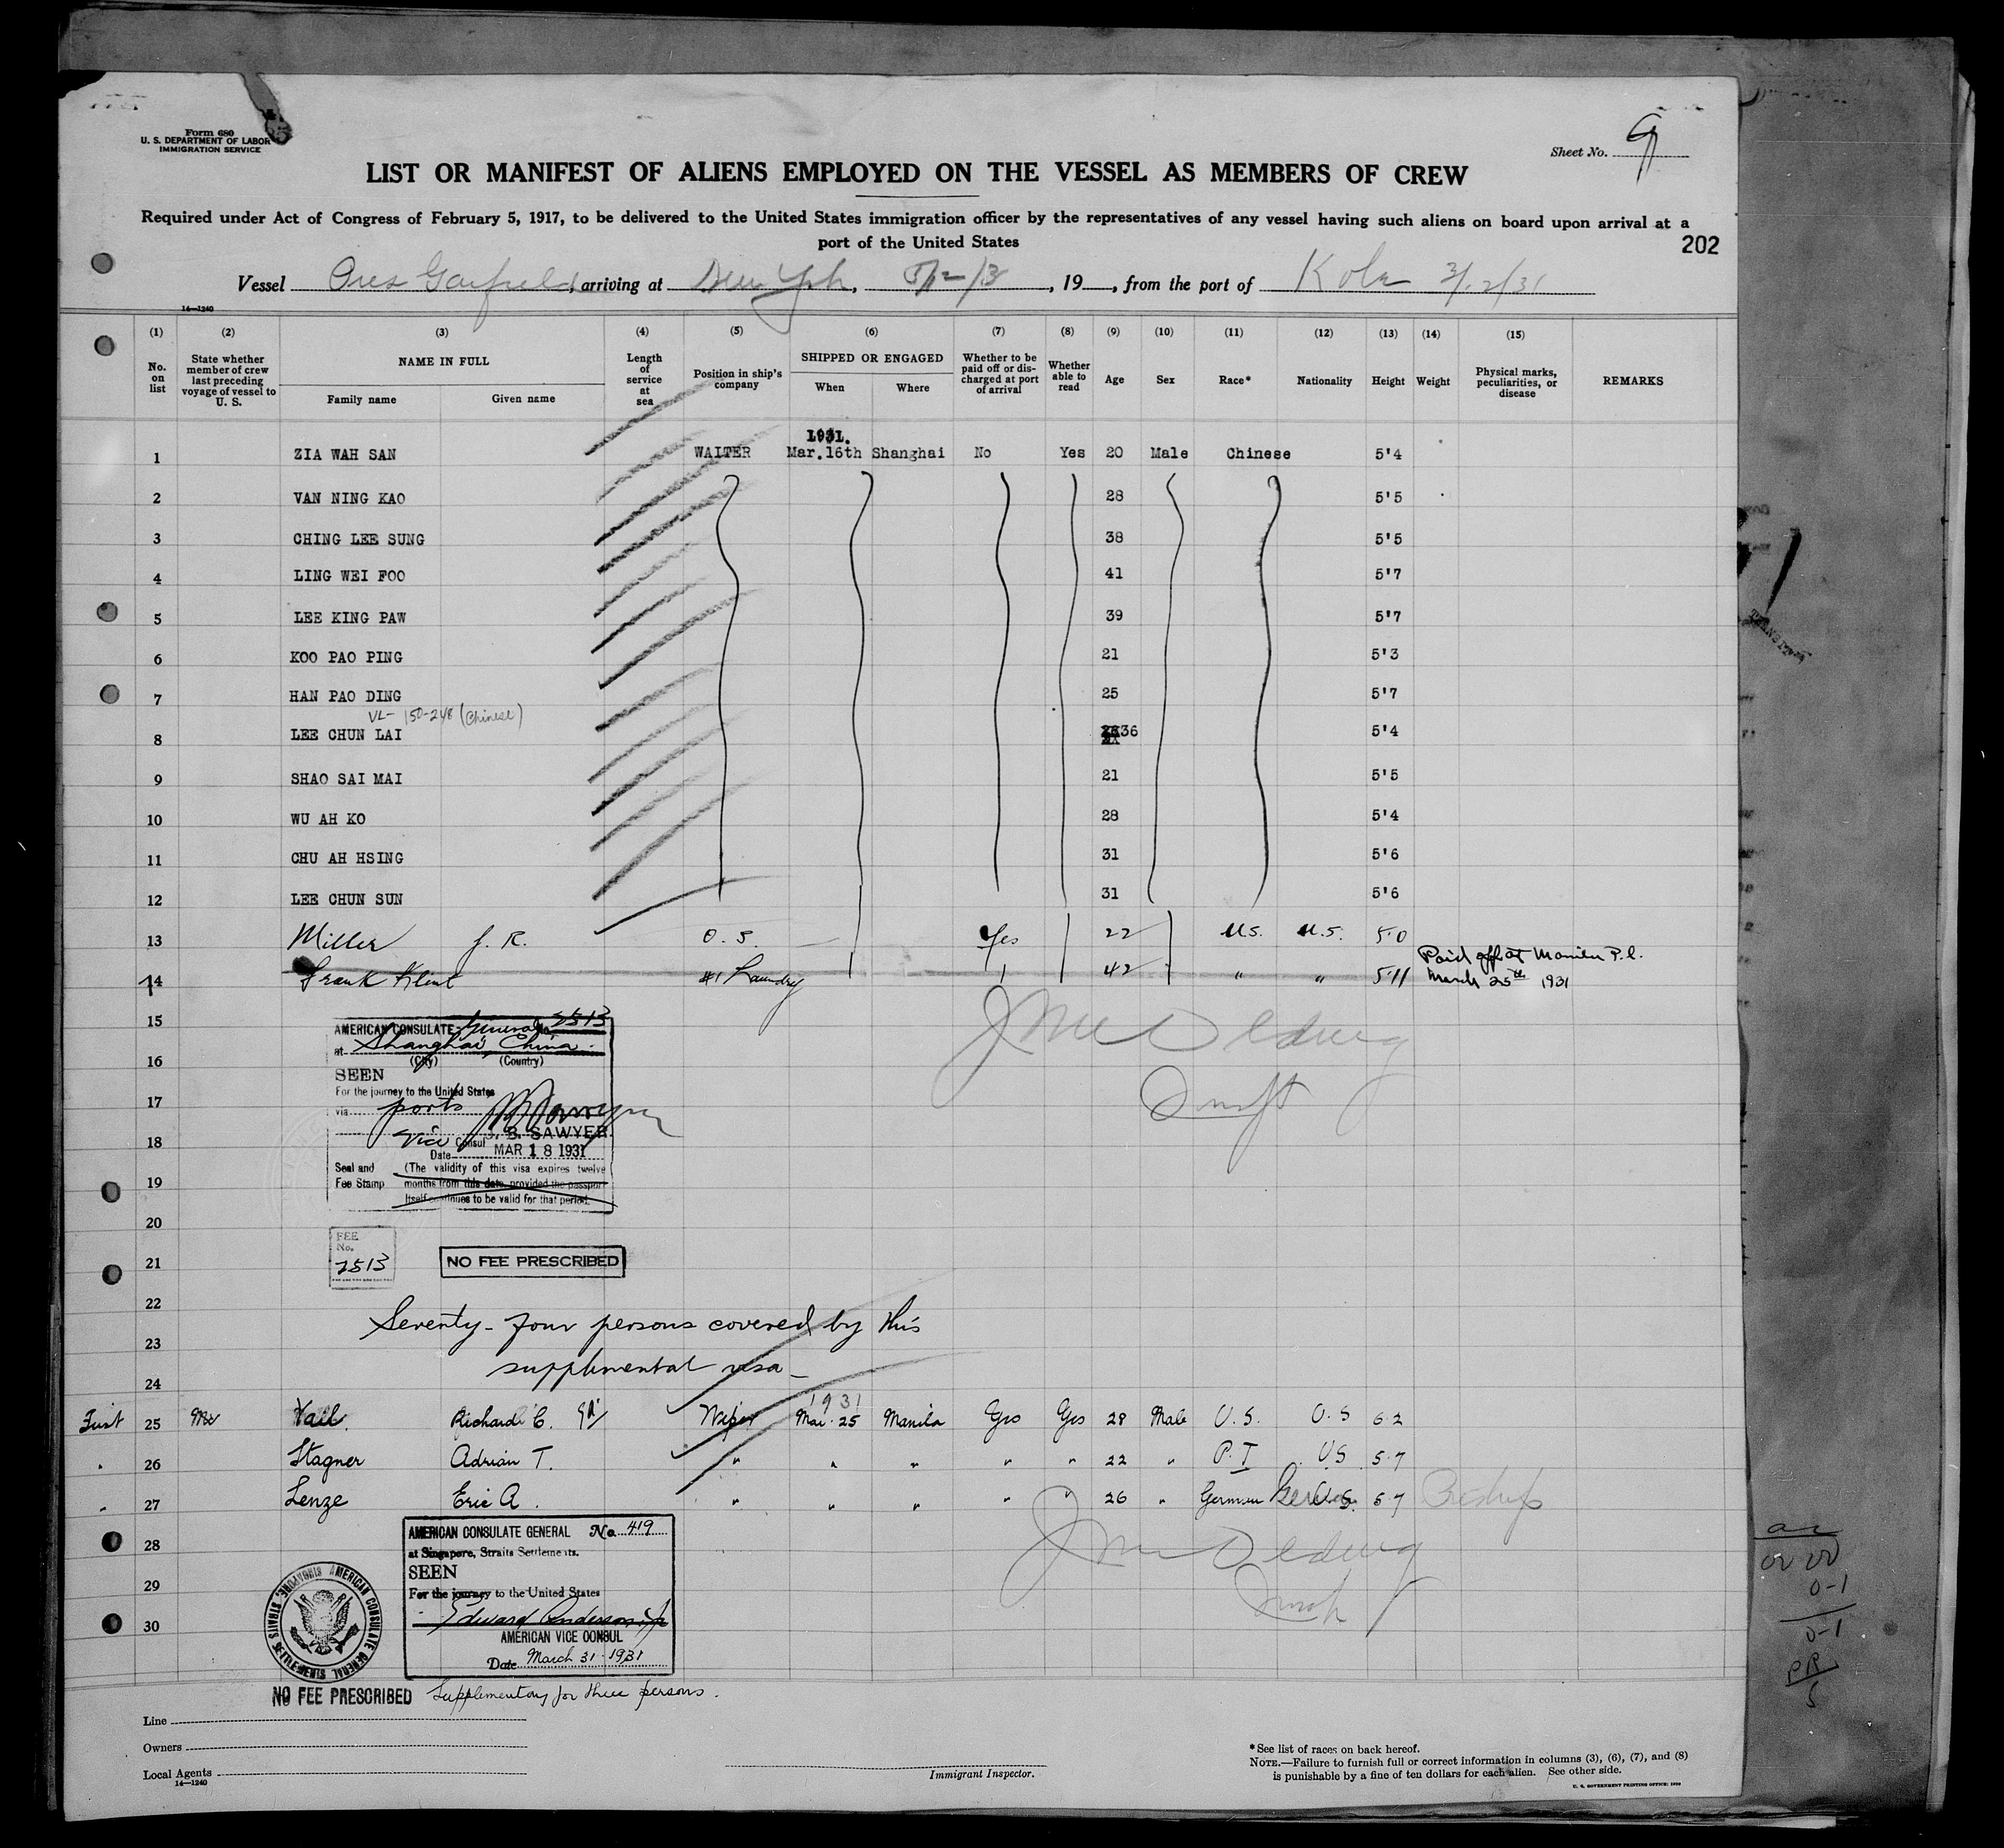 Form 680
U. S. DEPARTMENT OF LABOR
IMMIGRATION SERVICE
Sheet No. 9
LIST OR MANIFEST OF ALIENS EMPLOYED ON THE VESSEL AS MEMBERS OF CREW
Required under Act of Congress of February 5, 1917, to be delivered to the United States immigration officer by the representatives of any vessel having such aliens on board upon arrival at a
port of the United States
202
Vessel Pres Garfield, arriving at New York, 5/12/31, 19__, from the port of Kobe 3/12/31
14—1240
(1) (2) (3) (4) (5) (6) (7) (8) (9) (10) (11) (12) (13) (14) (15)
No. on list
State whether member of crew last preceding voyage of vessel to U. S.
NAME IN FULL
Family name Given name
Length of service at sea
Position in ship's company
SHIPPED OR ENGAGED
When Where
Whether to be paid off or discharged at port of arrival
Whether able to read
Age Sex Race* Nationality Height Weight
Physical marks, peculiarities, or disease
REMARKS
1931.
1 ZIA WAH SAN WAITER Mar.16th Shanghai No Yes 20 Male Chinese 5'4
2 VAN NING KAO 28 5'5
3 CHING LEE SUNG 38 5'5
4 LING WEI FOO 41 5'7
5 LEE KING PAW 39 5'7
6 KOO PAO PING 21 5'3
7 HAN PAO DING 25 5'7
VL- 150-248 (Chinese)
8 LEE CHUN LAI 36 5'4
9 SHAO SAI MAI 21 5'5
10 WU AH KO 28 5'4
11 CHU AH HSING 31 5'6
12 LEE CHUN SUN 31 5'6
13 Miller J. R. O. S. Yes 22 U.S. U.S. 5.0
14 Frank Klint #1 Laundry 42 " " 5.11 Paid off at Manila P.I.
March 25th 1931
15
AMERICAN CONSULATE-General No. 2513
at Shanghai, China.
(City) (Country)
16
SEEN
For the journey to the United States
17
via ports
18
Vice Consul J. B. SAWYER.
Date MAR 18 1931
Seal and Fee Stamp
(The validity of this visa expires twelve
19
months from this date, provided the passport
itself continues to be valid for that period.
20
FEE
No.
2513
21
NO FEE PRESCRIBED
22
Seventy-four persons covered by this
23
supplimental visa_
24
1931
First 25 Vail Richard C. Wiper Mar. 25 Manila Yes Yes 28 Male U.S. U.S 6.2
" 26 Stagner Adrian T. " " " " " 22 " P.I U.S 5.7
" 27 Lenze Eric A. " " " " " 26 " German U.S. 5 7
28
AMERICAN CONSULATE GENERAL No. 419
at Singapore, Straits Settlements.
SEEN
29
For the journey to the United States
Edward Anderson, Jr
30
AMERICAN VICE CONSUL
Date March 31-1931
AMERICAN CONSULATE GENERAL SINGAPORE, STRAITS SETTLEMENTS
NO FEE PRESCRIBED Supplementary for three persons.
Line
Owners
Local Agents
14—1240
Immigrant Inspector.
*See list of races on back hereof.
NOTE.—Failure to furnish full or correct information in columns (3), (6), (7), and (8)
is punishable by a fine of ten dollars for each alien. See other side.
U. S. GOVERNMENT PRINTING OFFICE: 1930